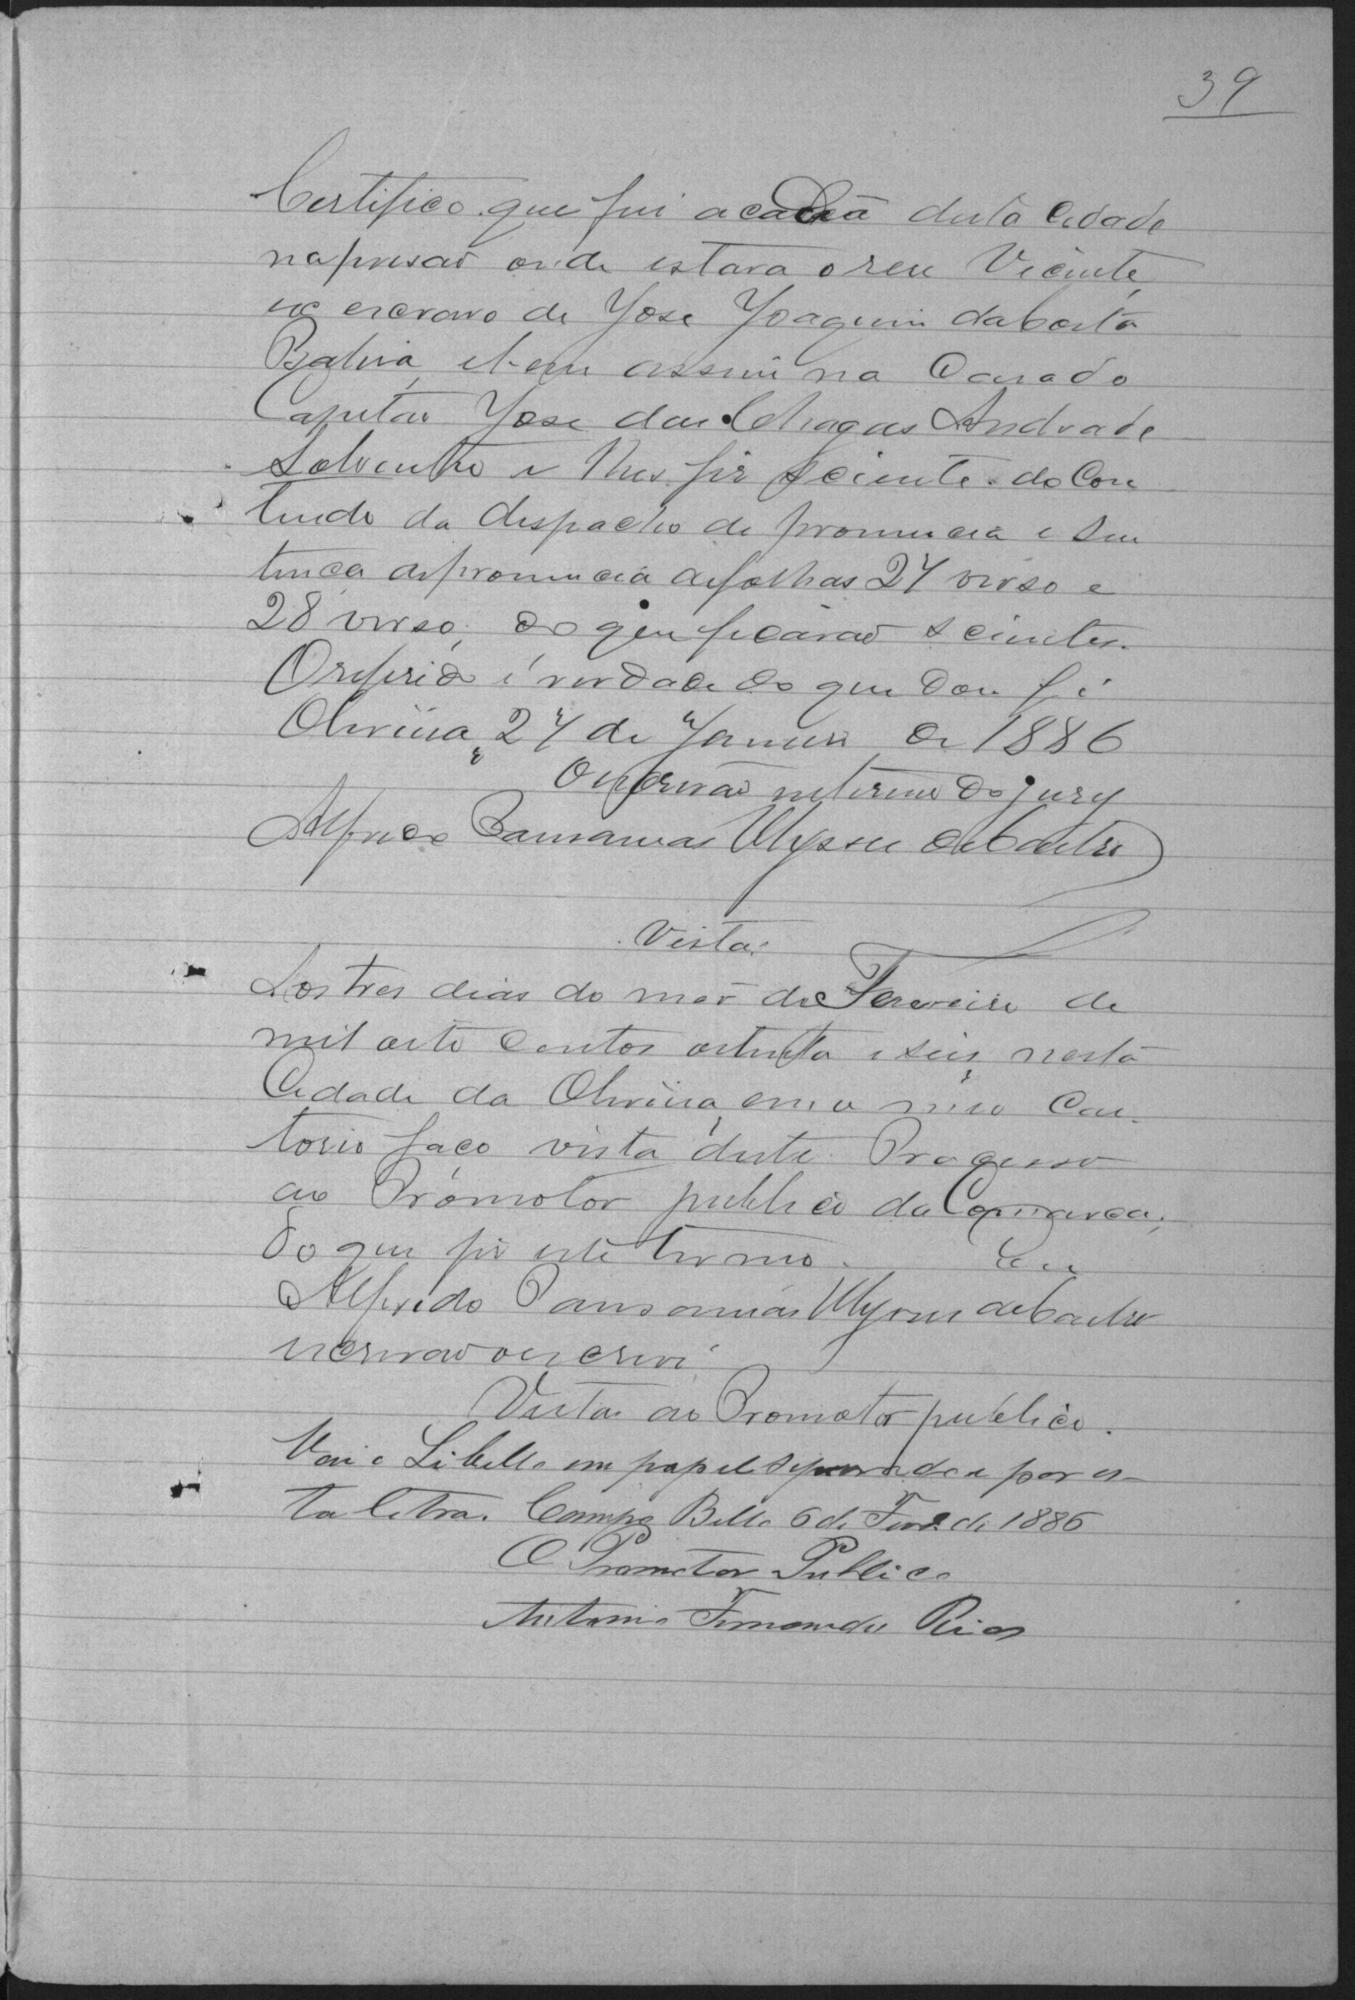 39
Certifico que fui a cadea desta Cidade
na prisaõ onde estava o reu Vicente,
ex escravo de Jose Joaquim da Costa
e bem assim na Casa do
Capitaõ Jose das Chagas Andrade
e lhes fiz sciente do Con
teudo da despacho de pronuncia e sen
tença de pronuncia de folhas 27 verso e
28 verso, do que ficaraõ scientes.
O referido é verdade do que dou fé
Oliveira, 27 de Janeiro de 1886
O escrivaõ interino do jury
Alfredo Pausanias Ulysses de Castro
Vista.
Aos tres dias do mes de Fevereiro de
mil oito centos oitenta e seis, nesta
Cidade da Oliveira, em o meu Car
torio faço vista deste Processo
ao Promotor publico da Comarca,
do que fiz este termo. Eu
Alfredo Pausanias Ulysses de Castro
escrivaõ o escrevi
Vista ao Promotor publico.
Vai o Libello em papel separado e por es-
ta letra. Campo Bello 6 de Fevº de 1886
O Promotor Publico
Antonio Fernandes Rios